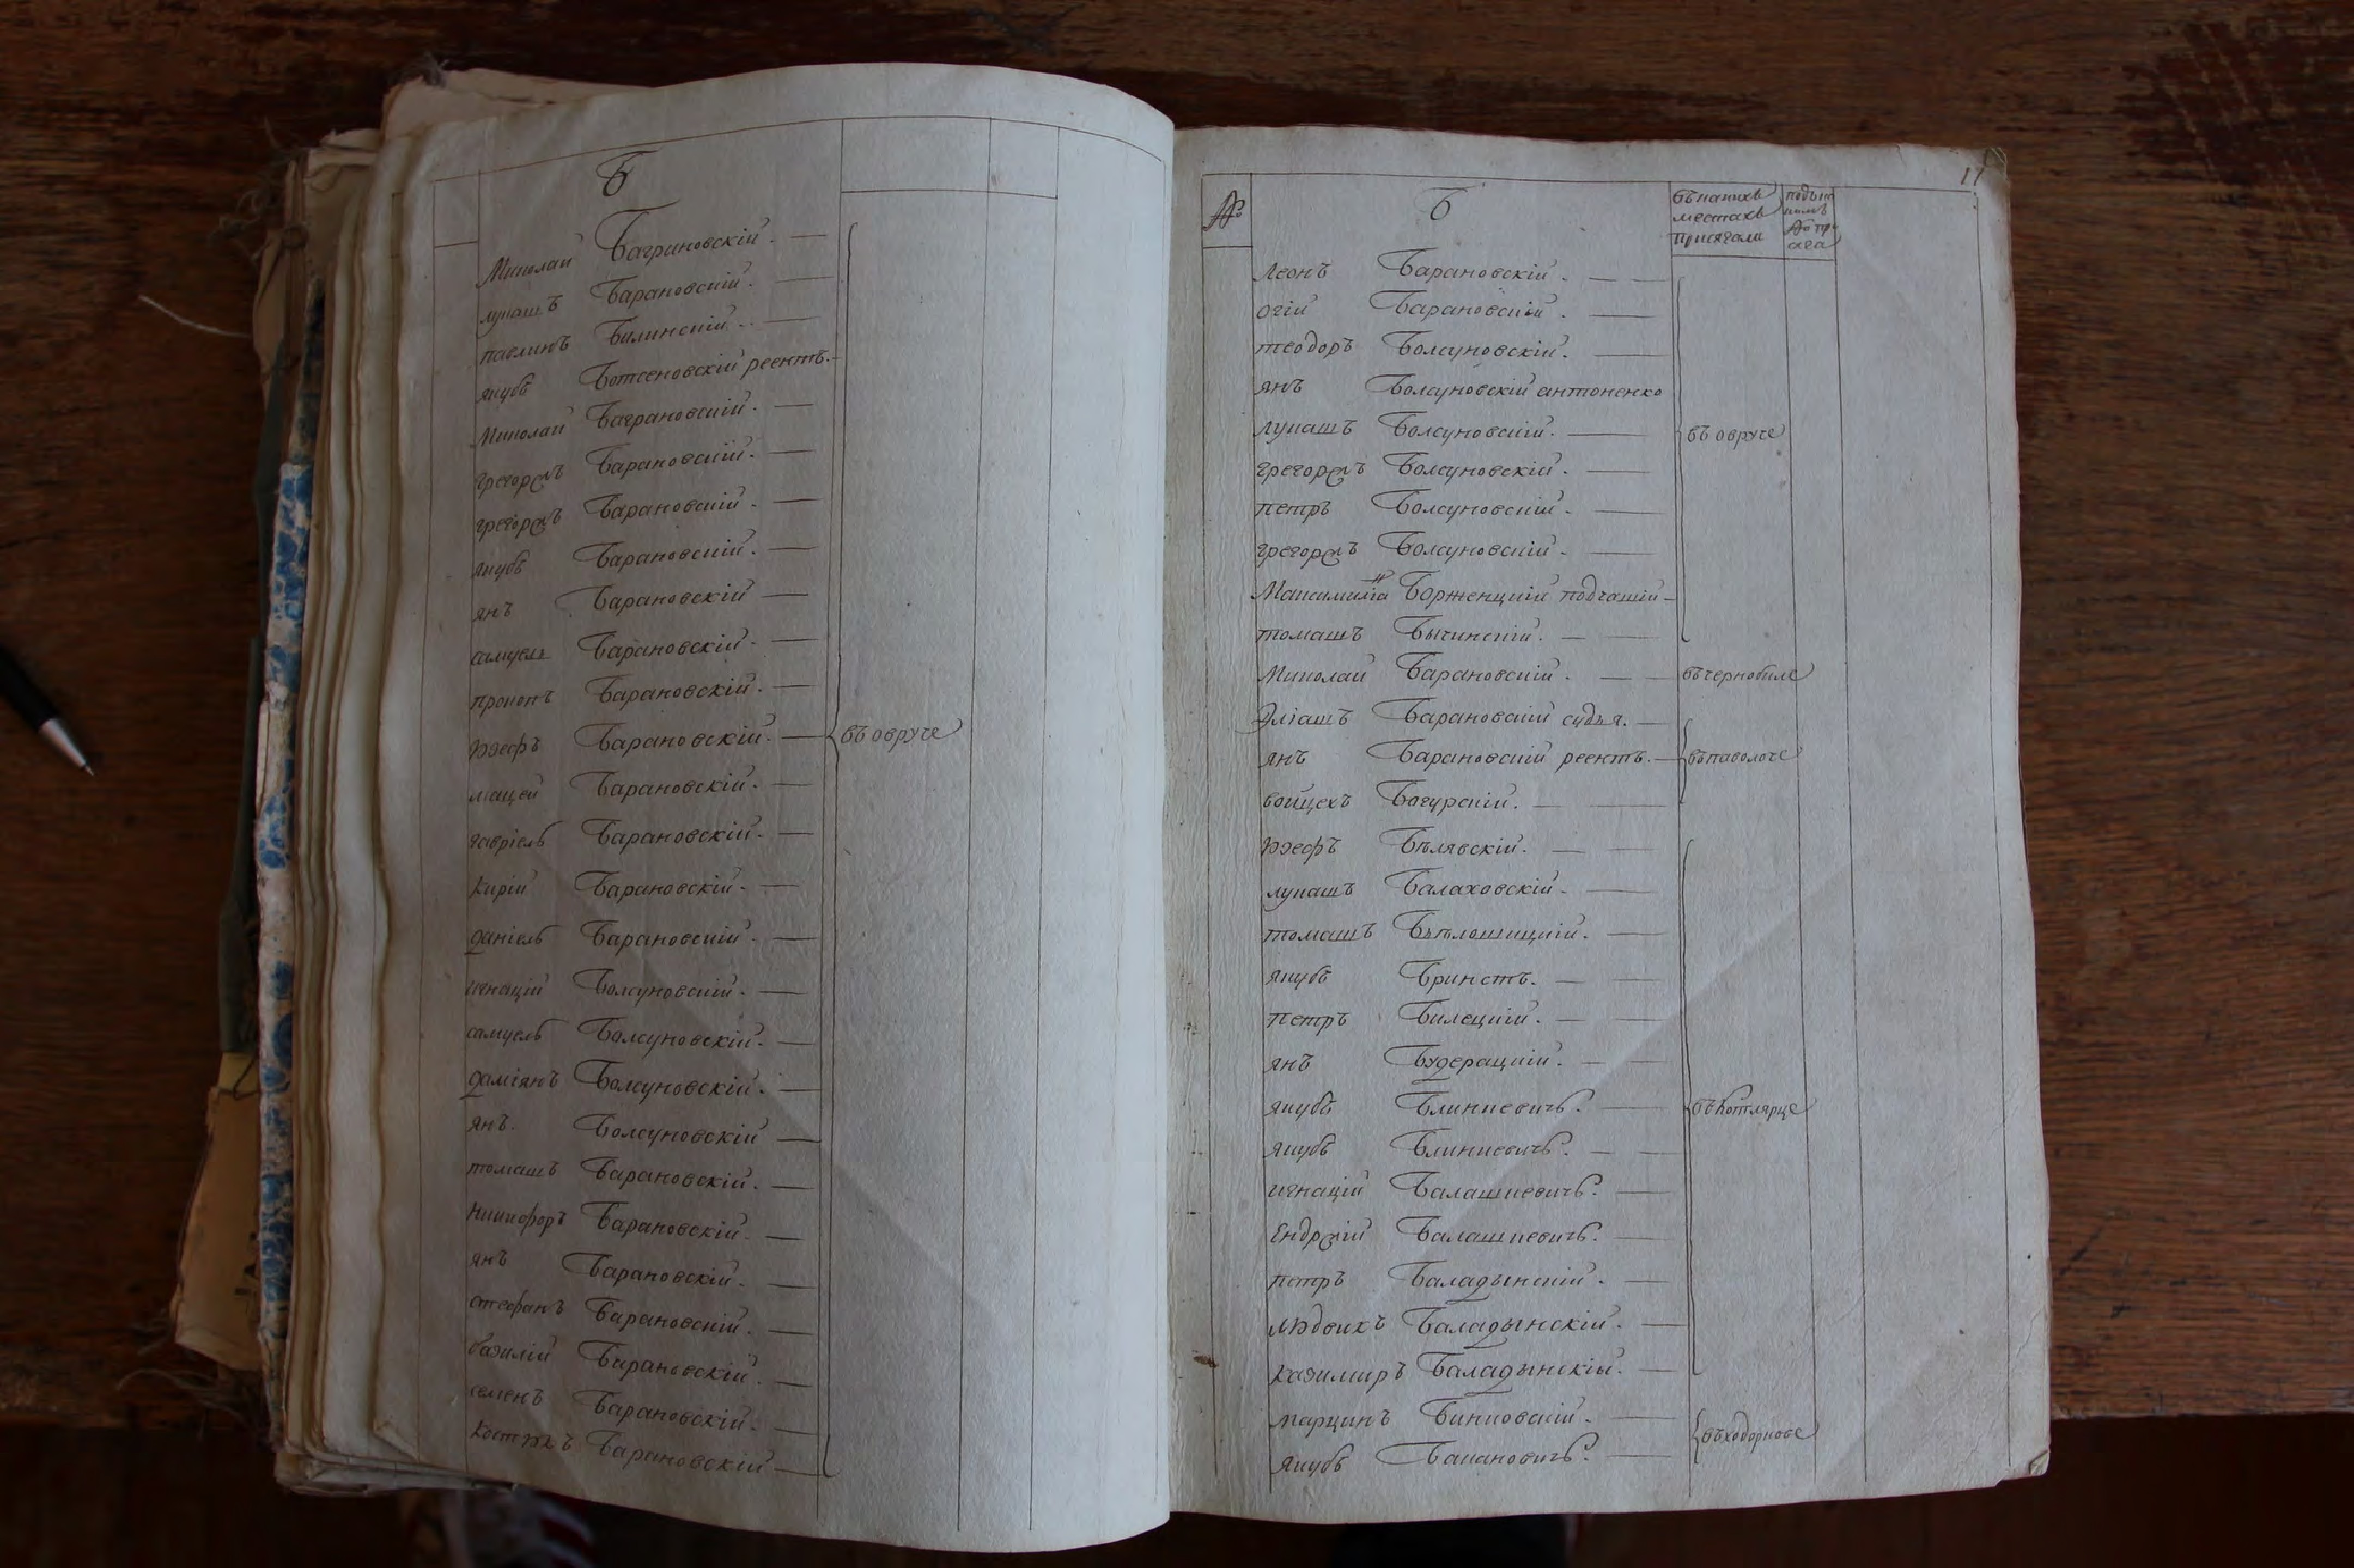 Б
Миколай Багриновскій.
лукашъ Барановскій.
павлинъ Билинскій.
якубъ Боженовскій реентъ.
Миколай Баграновскій.
грегоръ Барановскій.
грегоръ Барановскій.
якубъ Барановскій.
янъ Барановскій
самуель Барановскій.
прокопъ Барановскій.
юзефъ Барановскій. въ овруче
мацей Барановскій.
гавріель Барановскій.
Кирій Барановскій.
даніель Барановскій.
игнацій Болсуновскій.
самуель Болсуновскій.
даміянъ Болсуновскій.
янъ. Болсуновскій
томашъ Барановскій.
Никифоръ Барановскій.
янъ Барановскій.
стефанъ Барановскій.
базилій Барановскій.
семенъ Барановскій.
Барановскій
17
№ Б
въ какихъ
местахъ
присягали
леонъ Барановскій.
огій Барановскій.
теодоръ Болсуновскій.
янъ Болсуновскій антоненко
лукашъ Болсуновскій. въ овруче
грегоръ Болсуновскій.
петръ Болсуновскій.
грегоръ Болсуновскій.
Борженцкій подчашій
томашъ Бычинскій.
Миколай Барановскій. въ чернобиле
Эліашъ Барановскій судья.
янъ Барановскій реентъ. въ паволоче
войцехъ Богурскій.
юзефъ Бѣлявскій.
лукашъ Балаховскій.
томашъ Бѣлошицкій.
якубъ Бринстъ.
петръ Билецкій.
янъ Будерацкій.
якубъ Блинкевичъ. въ Котлярце
якубъ Блинкевичъ.
игнацій Балашкевичъ.
Ендржій Балашкевичъ.
петръ Баладынскій.
людвихъ Баладынскій.
казимиръ Баладынскій.
марцинъ Бинковскій.
въ ходоркове
якубъ Бакановичъ.